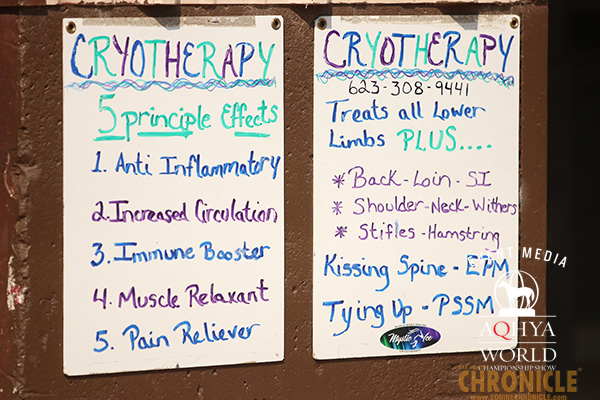 CRYOTHERAPY
5 principle Effects
1. Anti Inflammatory
2. Increased Circulation
3. Immune Booster
4. Muscle Relaxant
5. Pain Reliever
CRYOTHERAPY
623-308-9441
Treats all Lower
Limbs PLUS....
* Back-Loin-SI
* Shoulder-Neck-Withers
* Stifles-Hamstring
Kissing Spine - EPM
Tying Up - PSSM
Mystic Ice
MEDIA
AQHYA
WORLD
CHAMPIONSHIP SHOW
CHRONICLE
WWW.EQUINECHRONICLE.COM